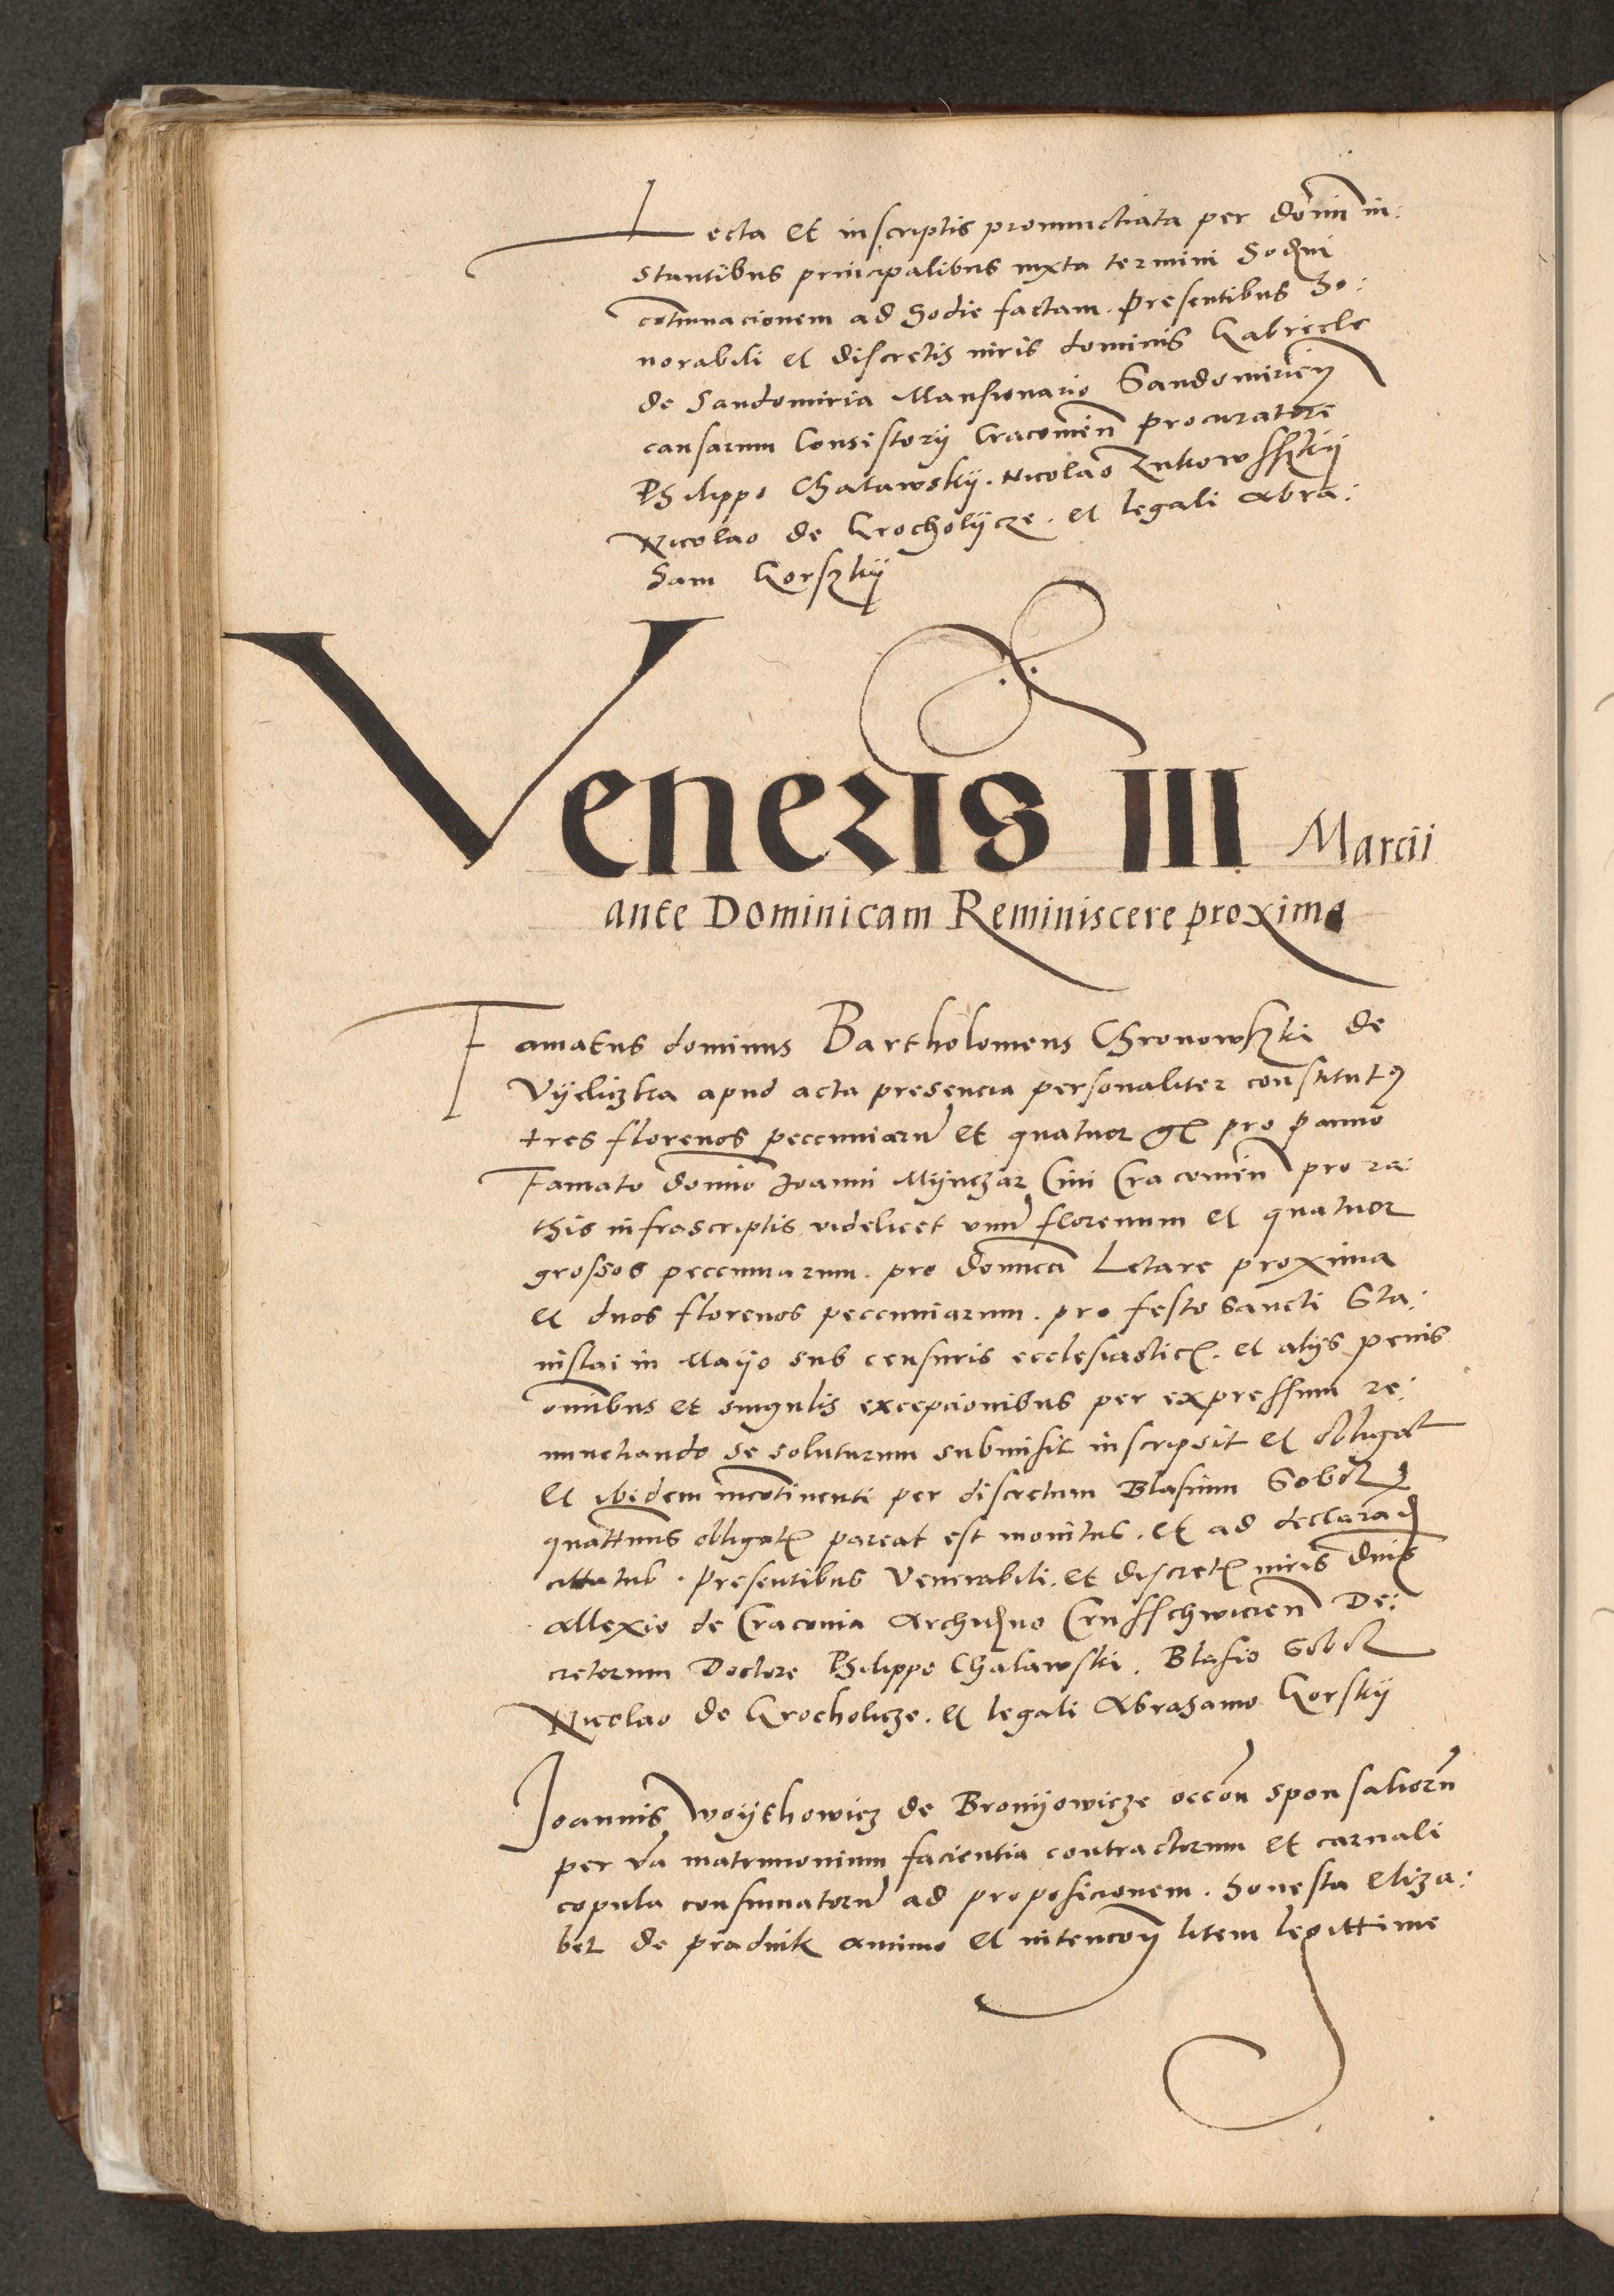 Lecta et inscriptis pronunctiata per domin in:
stantibus principalibus iuxta termini hodrni
cotinuacionem ad hodie factam. Presentibus ho:
norabili et discretis viris dominis Gabriele
de Sandomiria Mansionario Sandomirien
causarum Consistorij Cracovien procuratore
Philippo Chalawskij. Nicolao Zukowsskij
Nicolao de Grocholijcze. et legali Abra:
ham Gorszkij
Veneris III Marcii
ante Dominicam Reminiscere proxima
Famatus dominus Bartholomeus Chronowszki de
Vijelizka apud acta presencia personaliter constitut9
tres florenos peccuniaru et quatuor gr pro panno
Famato domino Joanni Mijnczar Civi Cracovien pro ra:
this infrascriptis videlicet unu florenum et quatuor
grossos peccuniarum. pro dominca Letare proxima
et duos florenos peccuniarum. pro festo Sancti Sta:
nislai in Maijo sub censuris ecclesiastic. et alijs penis
omnibus et singulis excepcionibus per expressum re:
nunctiando se soluturum submisit inscripsit et obligat
et ibidem incotinenti per discretum Blasium
quattinus obligat pareat est monitus. et ad declarad
cittatus. Presentibus Venerabili. et discret viris dnis
Allexio de Cracovia Archidno Crusschwicien De:
cretorum Doctore Philippo Chalawski. Blasio
Nicolao de Grocholicze. et legali Abrahamo Gorskij
Joannis Woijthowicz de Bronijowicze occon sponsalioru
per va matrimonium facientia contractorum et carnali
copula consumatoru ad proposicionem. honesta Eliza:
bet de pradnik animo et intencon litem legittime